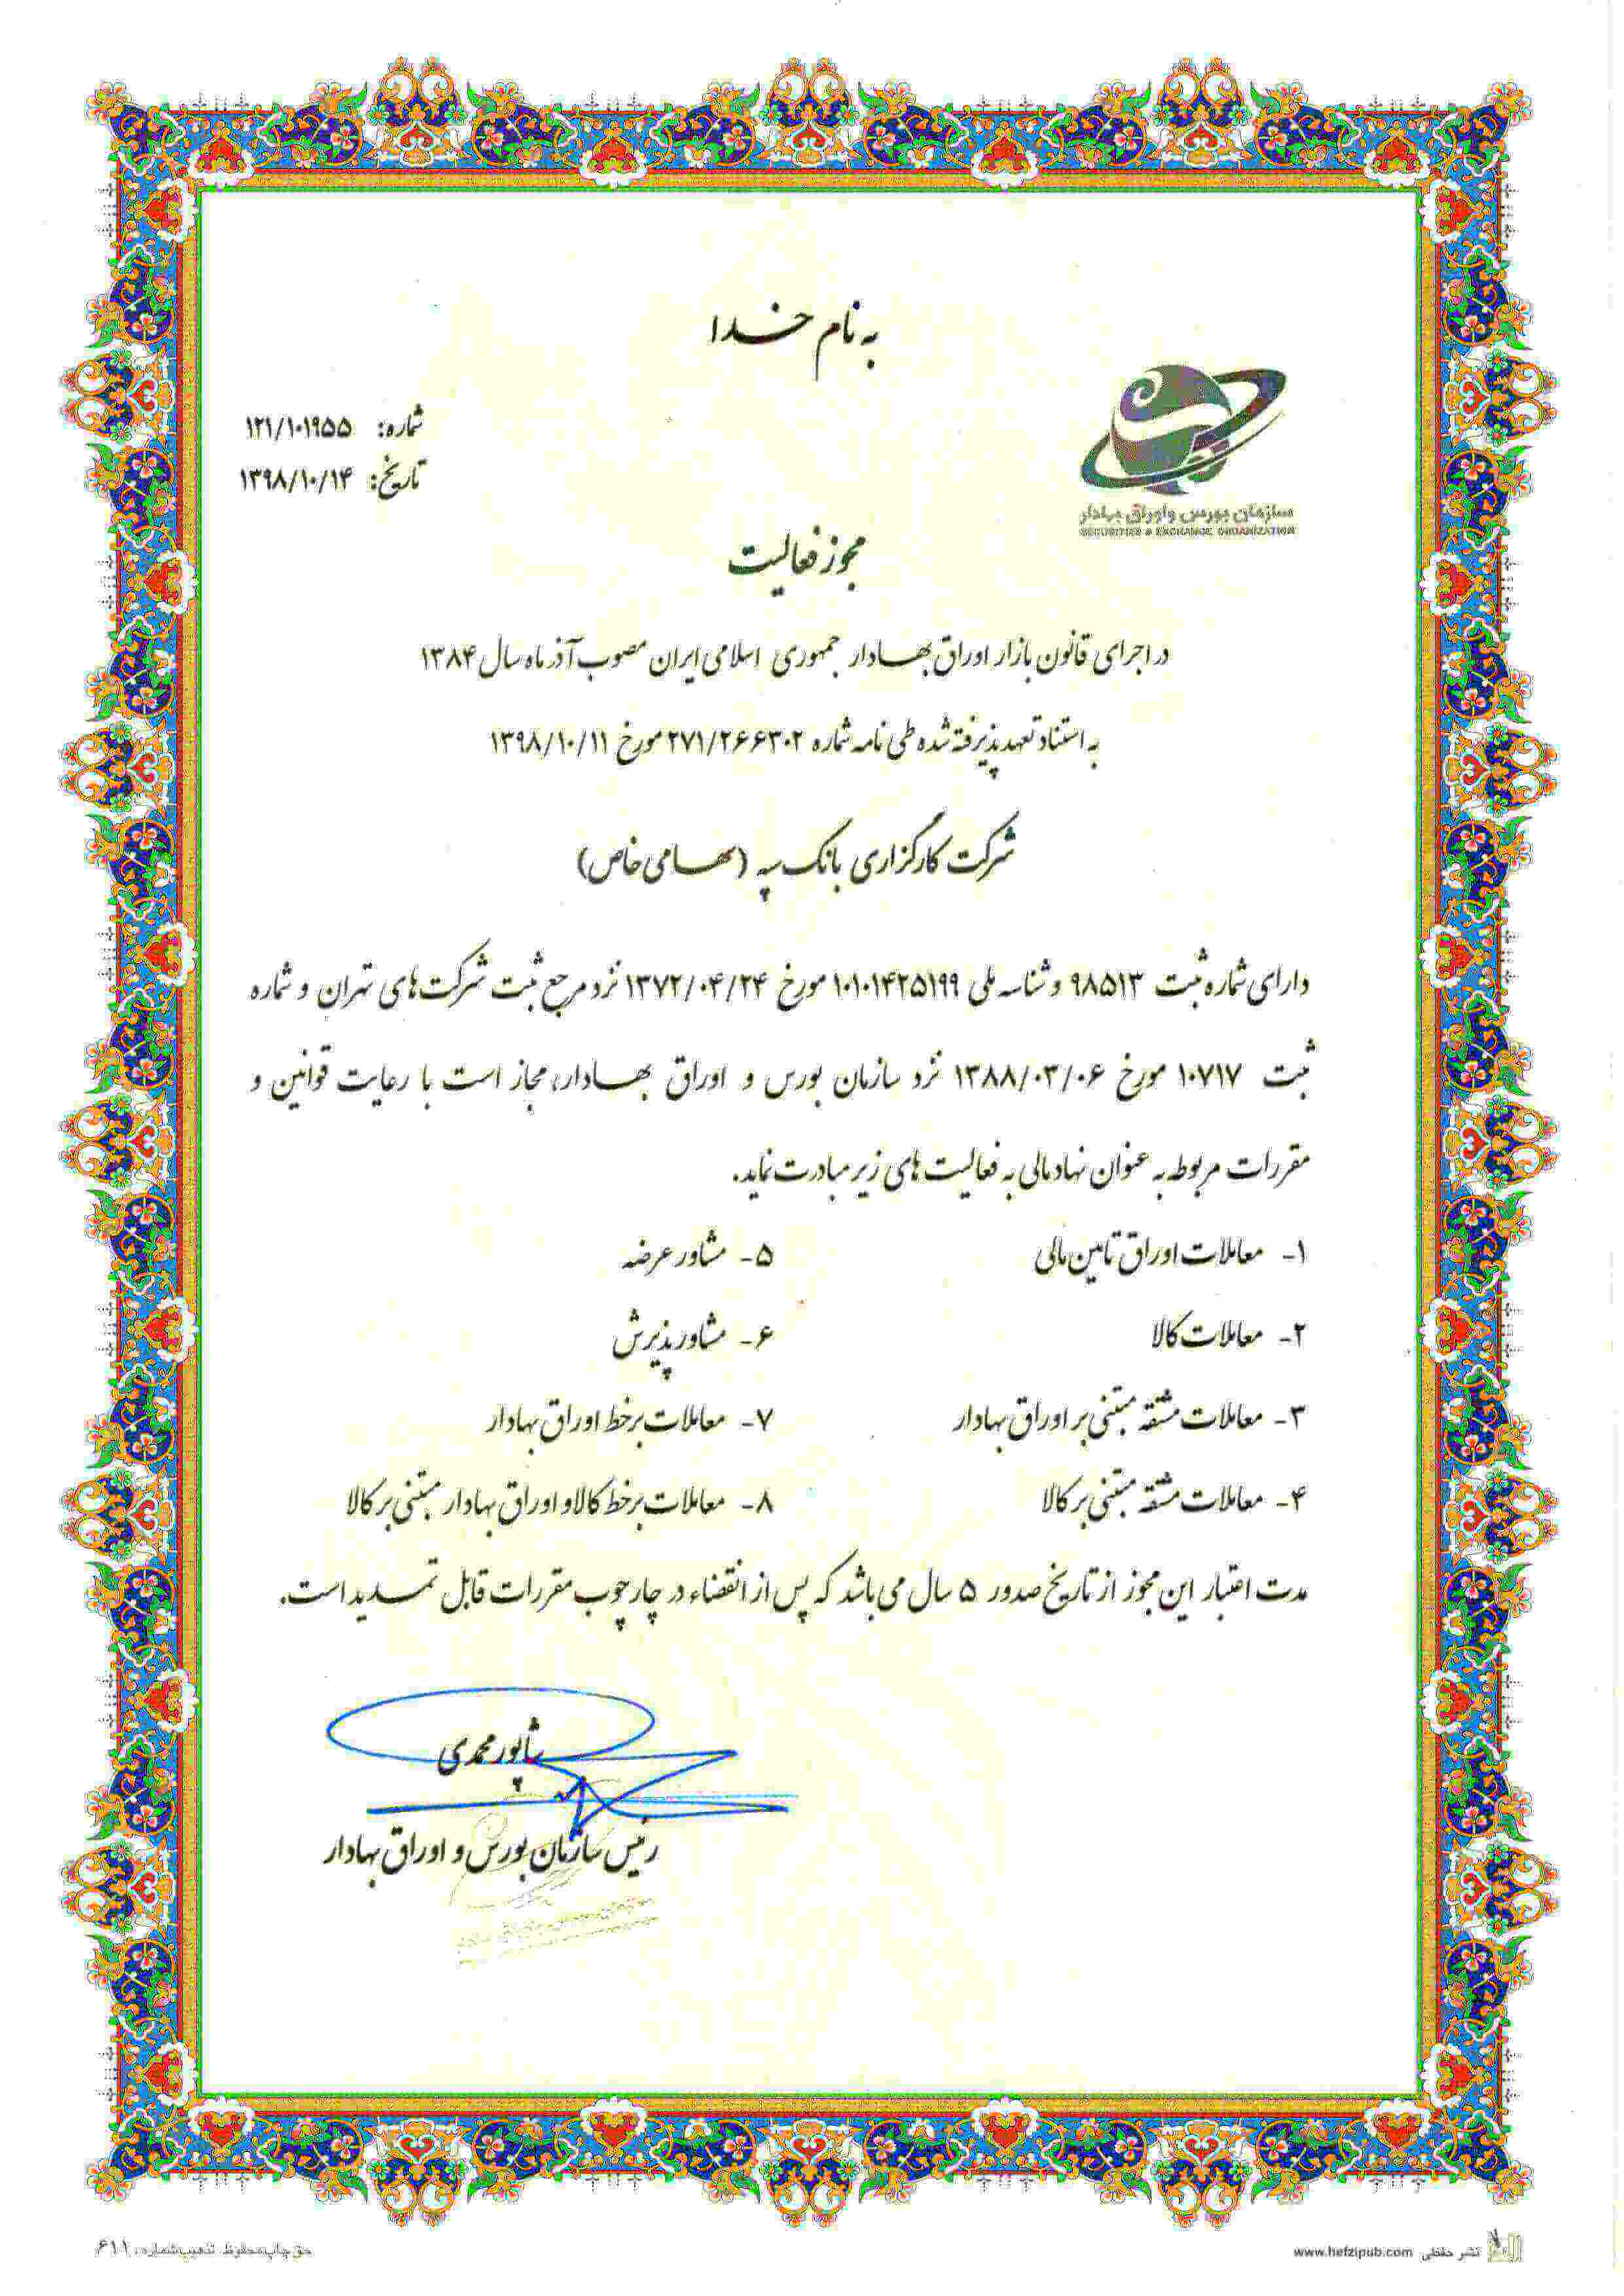 به نام خدا
شماره: ۱۲۱/۱۰۱۹۵۵
تاریخ: ۱۳۹۸/۱۰/۱۴
سازمان بورس و اوراق بهادار
SECURITIES & EXCHANGE ORGANIZATION
مجوز فعالیت
در اجرای قانون بازار اوراق بهادار جمهوری اسلامی ایران مصوب آذر ماه سال ۱۳۸۴
به استناد تعهد پذیرفته شده طی نامه شماره ۲۷۱/۲۶۶۳۰۲ مورخ ۱۳۹۸/۱۰/۱۱
شرکت کارگزاری بانک سپه (سهامی خاص)
دارای شماره ثبت ۹۸۵۱۳ و شناسه ملی ۱۰۱۰۱۴۲۵۱۹۹ مورخ ۱۳۷۲/۰۴/۲۴ نزد مرجع ثبت شرکت های تهران و شماره
ثبت ۱۰۷۱۷ مورخ ۱۳۸۸/۰۳/۰۶ نزد سازمان بورس و اوراق بهادار، مجاز است با رعایت قوانین و
مقررات مربوط به عنوان نهاد مالی به فعالیت های زیر مبادرت نماید.
۱- معاملات اوراق تامین مالی
۲- معاملات کالا
۳- معاملات مشتقه مبتنی بر اوراق بهادار
۴- معاملات مشتقه مبتنی بر کالا
۵- مشاور عرضه
۶- مشاور پذیرش
۷- معاملات برخط اوراق بهادار
۸- معاملات برخط کالا و اوراق بهادار مبتنی بر کالا
مدت اعتبار این مجوز از تاریخ صدور ۵ سال می باشد که پس از انقضاء در چارچوب مقررات قابل تمدید است.
شاپور محمدی
رئیس سازمان بورس و اوراق بهادار
حق چاپ محفوظ. تذهیب شماره: ۶۱۱
نشر حفظی www.hefzipub.com